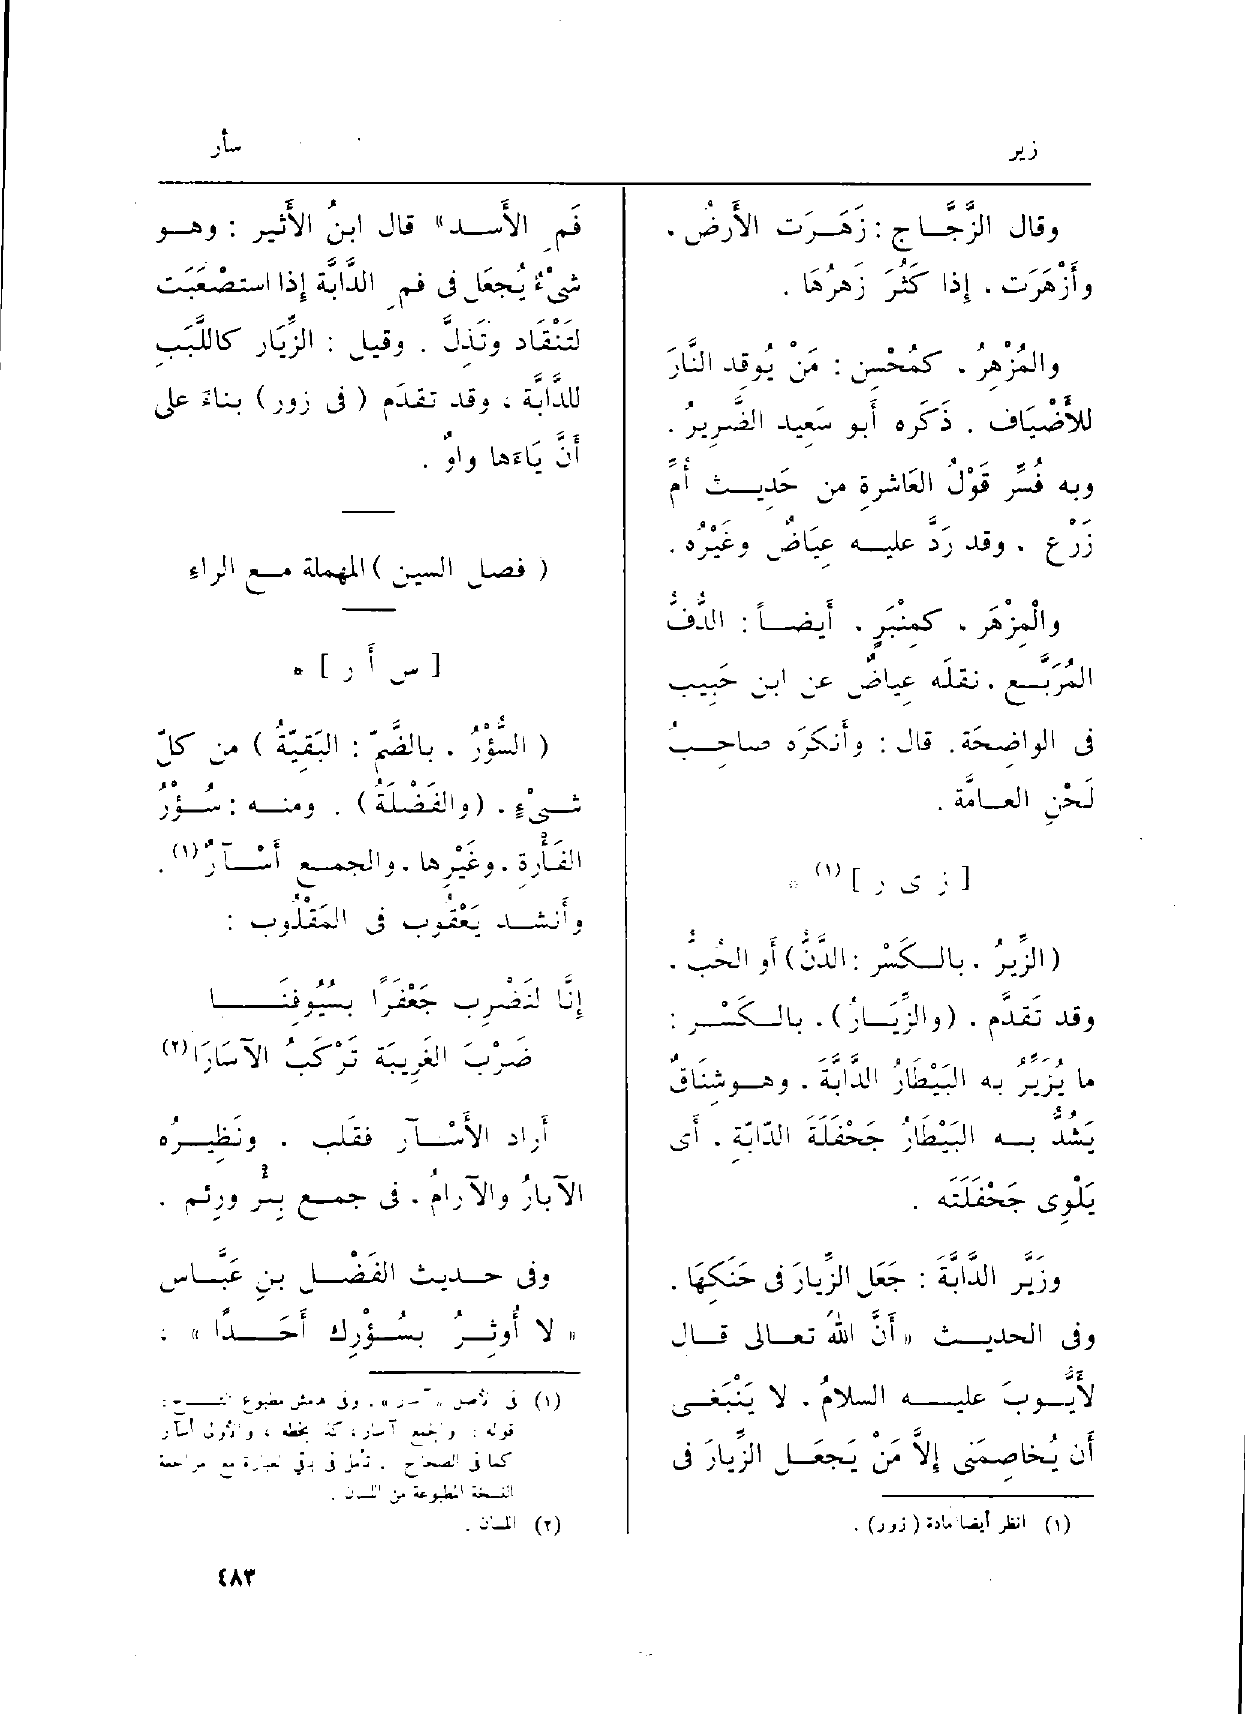 زير
سأر
وقال الزَّجَّــاج : زَهَــرَت الأَرضُ ،
وأَزْهَرَت ، إذا كَثُرَ زَهرُهَا .
والمُزْهِرُ ، كمُحْسِن : مَنْ يُوقِد النَّارَ
للأَضْيَاف . ذَكَره أَبو سَعِيد الضَّرِيرُ .
وبه فُسِّر قَوْلُ العَاشرةِ من حَدِيــث أُمِّ
زَرْعٍ ، وقد رَدَّ عليــه عِيَاضٌ وغَيْرُه .
والْمِزْهَر ، كمِنْبَرٍ ، أَيضــاً : الدُّفُّ
المُرَبَّــع ، نقلَه عِياضٌ عن ابن حَبِيب
فى الواضِحَة. قال : وأَنكرَه صاحِــبُ
لَحْنِ العــامَّة .
[ ز ى ر ] (١) *
( الزِّيرُ ، بالــكَسْر : الدَّنُّ) أَو الحُبُّ .
وقد تَقدَّم . (والزِّيَــارُ) ، بالــكَسْــر :
ما يُزَيِّرُ به البَيْطَارُ الدَّابَّةَ ، وهــو شِناقٌ
يَشُدُّ بــه البَيْطَارُ جَحْفَلَةَ الدّابّةِ . أَى
يَلْوِى جَحْفَلَتَه .
وزَيَّر الدَّابَّةَ : جَعَل الزِّيارَ فى حَنَكِهَا .
وفى الحديــث « أَنَّ اللهَ تعــالى قــال
لأَيُّــوبَ عليــه السلامُ ، لا يَنْبَغِــى
أَن يُخاصِمَنى إِلاَّ مَنْ يَجعَــل الزِّيارَ فى
(١) انظر أيضا مادة ( زور) .
فَمِ الأَســد» قال ابنُ الأَثير : وهــو
شىْءٌ يُجعَل فى فمِ الدَّابَّة إذا استصْعَبَت
لتَنْقَادَ وتَذِلَّ . وقيل : الزِّيَار كاللَّبَبِ
للدَّابَّة ، وقد تقدّم ( فى زور ) بناءً على
أَنَّ يَاءَها واوٌ .
( فصل السين ) المهملة مــع الراءِ
[ س أ ر ] *
( السُّؤْرُ ، بالضَّمّ : البَقِيَّةُ ) من كلِّ
شــىْءٍ . (والفَضْلَةُ) . ومنــه : سُــؤْرُ
الفَأْرةِ ، وغَيْرِها ، والجمــع أَسْــآرٌ(١) .
وأَنشــد يَعْقُوب فى المَقْلُوب :
إِنَّا لنَضْرِب جَعْفَرًا بسُيُوفِنَــا
ضَرْبَ الغَرِيبَة تَرْكَبُ الآسَارَا(٢)
أَراد الأَسْــآر فقَلب ، ونَظِيــرُه
الآبارُ والآرامُ ، فى جمــع بِئْر ورِئم .
وفى حــديث الفَضْــل بن عَبَّــاس
« لا أُوثِــرُ بسُــؤْرِك أَحَــدًا » :
(١) فى الأصل . وفى هامش مطبوع التــاج :
قوله : والجمع آسار، كذا بخطه ، والأولى أسآر
كما فى الصحاح . تأمل فى باقى العبارة مع مراجعة
النسخة المطبوعة من اللسان .
(٢) اللسان .
٤٨٣